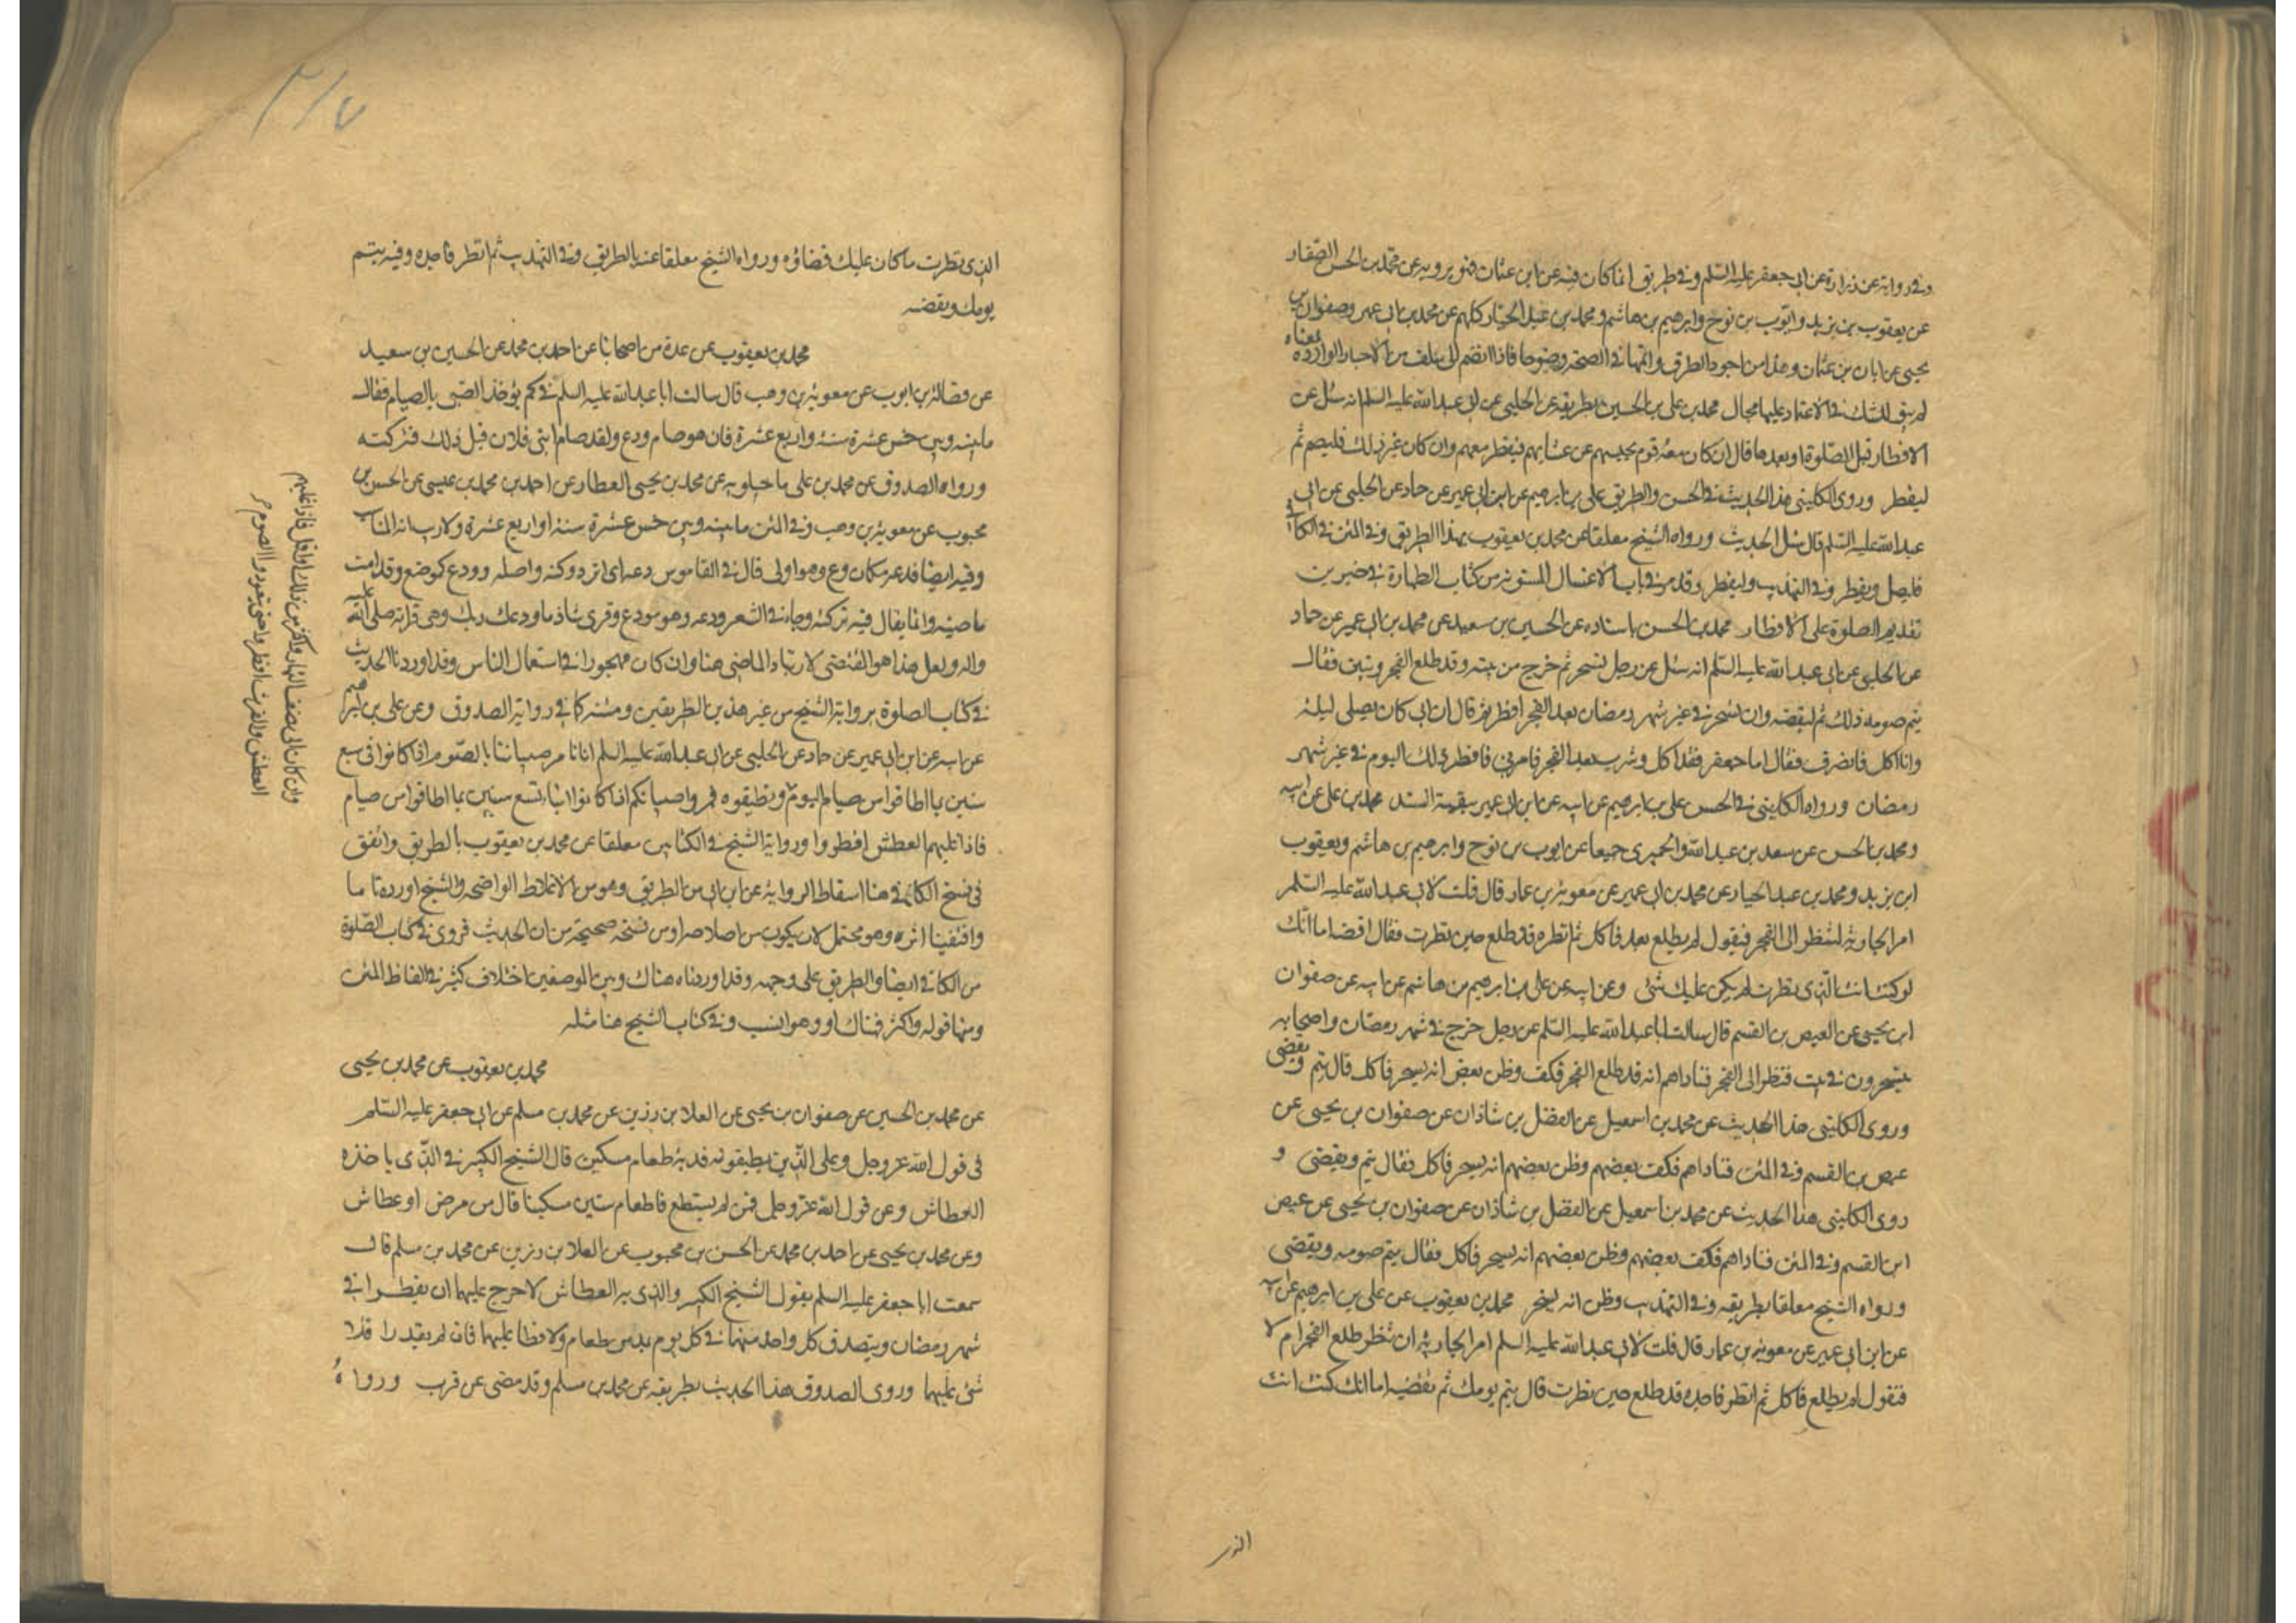 وفي رواية عن زرارة عن ابي جعفر عليه السلم وفي طريق انما كان فيه عن ابن عثمان فنو يرويه عن محمد بن الحسن الصفار
عن يعقوب بن يزيد وايوب بن نوح وابرهيم بن هاشم ومحمد بن عبد الجبار كلهم عن محمد بن ابي عمير وصفوان بن
يحيى عن ابان بن عثمان وهذا من اجود الطرق واتمها في الصحة وضوحا فاذا انضم الى ما سلف من الاخبار الواردة بمعناه
لم يبق للشك في الاعتماد عليها مجال محمد بن علي بن الحسين بطريقه عن الحلبي عن ابي عبد الله عليه السلم انه سئل عن
الافطار قبل الصلوة او بعدها قال ان كان معه قوم يحبسهم عن عشايهم فيفطر معهم وان كان غير ذلك فليصم ثم
ليفطر وروى الكليني هذا الحديث في الحسن والطريق علي بن ابرهيم عن ابيه عن ابن ابي عمير عن حماد عن الحلبي عن ابي
عبد الله عليه السلم قال سئل الحديث ورواه الشيخ معلقا عن محمد بن يعقوب بهذا الطريق وفي المتن في الكافي
فليصل ويفطر وفي التهذيب وليفطر وقد مر في باب الاغسال المسنونة من كتاب الطهارة في خبرين
تقديم الصلوة على الافطار محمد بن الحسن باسناده عن الحسين بن سعيد عن محمد بن ابي عمير عن حماد
عن الحلبي عن ابي عبد الله عليه السلم انه سئل عن رجل تسحر ثم خرج من بيته وقد طلع الفجر وتبين فقال
يتم صومه ذلك ثم ليقضه وان تسحر في غير شهر رمضان بعد الفجر افطر ثم قال ان ابي كان يصلي ليلة
وانا اكل فانصرف فقال اما جعفر فقد اكل وشرب بعد الفجر فامرني فافطرت ذلك اليوم في غير شهر
رمضان ورواه الكليني في الحسن علي بن ابرهيم عن ابيه عن ابن ابي عمير ببقية السند محمد بن علي عن ابيه
ومحمد بن الحسن عن سعد بن عبد الله والحميري جميعا عن ايوب بن نوح وابرهيم بن هاشم ويعقوب
ابن يزيد ومحمد بن عبد الجبار عن محمد بن ابي عمير عن معوية بن عمار قال قلت لابي عبد الله عليه السلم
امر الجارية لتنظر الى الفجر فيقول لم يطلع بعد فاكل ثم انظره قد طلع حين نظرت فقال اقضه اما انك
لو كنت انت الذي نظرت لم يكن عليك شئ وعن ابيه عن علي بن ابرهيم بن هاشم عن ابيه عن صفوان
ابن يحيى عن العيص بن القسم قال سالت ابا عبد الله عليه السلم عن رجل خرج في شهر رمضان واصحابه
يتسحرون في بيت فنظر الى الفجر فناداهم انه قد طلع الفجر فكف وظن بعض انه يسخر فاكل قال يتم ويقضى
وروى الكليني هذا الحديث عن محمد بن اسمعيل عن الفضل بن شاذان عن صفوان بن يحيى عن
عيص بن القسم وفي المتن فناداهم فكف بعضهم وظن بعضهم انه يسخر فاكل فقال يتم ويقضى و
روى الكليني هذا الحديث عن محمد بن اسمعيل عن الفضل بن شاذان عن صفوان بن يحيى عن عيص
ابن القسم وفي المتن فناداهم فكف بعضهم وظن بعضهم انه يسخر فاكل فقال يتم صومه ويقضى
ورواه الشيخ معلقا بطريقه وفي التهذيب وظن انه يسخر محمد بن يعقوب عن علي بن ابرهيم عن ابيه
عن ابن ابي عمير عن معوية بن عمار قال قلت لابي عبد الله عليه السلم امر الجارية ان تنظر طلع الفجر ام لا
فتقول لم يطلع فاكل ثم انظر فاجده قد طلع حين نظرت قال يتم يومك ثم تقضيه اما انك كنت انت
الذي نظرت ما كان عليك قضاؤه ورواه الشيخ معلقا عنه بالطريق وفي التهذيب ثم انظر فاجده وفيه يتم
يومك وتقضه
محمد بن يعقوب عن عدة من اصحابنا عن احمد بن محمد عن الحسين بن سعيد
عن فضالة بن ايوب عن معوية بن وهب قال سالت ابا عبد الله عليه السلم في كم يؤخذ الصبي بالصيام فقال
ما بينه وبين خمس عشرة سنة واربع عشرة فان هو صام ودع ولقد صام ابني فلان قبل ذلك فتركته
ورواه الصدوق عن محمد بن علي ماجيلويه عن محمد بن يحيى العطار عن احمد بن محمد بن عيسى عن الحسن بن
محبوب عن معوية بن وهب وفي المتن ما بينه وبين خمس عشرة سنة او اربع عشرة ولا ريب انه المناسب
وفيه ايضا فدعه مكان ودع وهو اولى قال في القاموس دعه اي اتركه واصله ودع كوضع وقد اميت
ماضيه وانما يقال فيه تركه وجاء في الشعر ودعه وهو مودع وقرئ شاذ ما ودعك ربك وهي قراته صلى الله عليه
واله ولعل هذا هو المقتضى لارتياد الماضي هنا وان كان مهجورا في استعمال الناس وقد اوردنا الحديث
في كتاب الصلوة برواية الشيخ من غير هذين الطريقين ومتنه كما في رواية الصدوق وعن علي بن ابرهيم
عن ابيه عن ابن ابي عمير عن حماد عن الحلبي عن ابي عبد الله عليه السلم انا نامر صبياننا بالصوم اذا كانوا في سبع
سنين بما اطاقوا من صيام اليوم ويطيقوه فمروا صبيانكم اذا كانوا ابناء تسع سنين بما اطاقوا من صيام
فاذا غلبهم العطش افطروا ورواية الشيخ في الكتابين معلقا عن محمد بن يعقوب بالطريق واتفق
في نسخ الكافي هنا اسقاط الرواية عن ابن ابي من الطريق وهو من الاغلاط الواضحة والشيخ اورده تاما
واقتفينا اثره وهو محتمل لان يكون من اصلاحه او من نسخة صحيحة من ان الحديث مروي في كتاب الصلوة
من الكافي ايضا والطريق على وجهه وقد اوردناه هناك وبين الموضعين اختلاف كثير في الفاظ المتن
ومنها قوله واكثر فهناك او وهو انسب وفي كتاب الشيخ هنا مثله
محمد بن يعقوب عن محمد بن يحيى
عن محمد بن الحسين عن صفوان بن يحيى عن العلا بن رزين عن محمد بن مسلم عن ابي جعفر عليه السلم
في قول الله عز وجل وعلى الذين يطيقونه فدية طعام مسكين قال الشيخ الكبير والذي ياخذه
العطاش وعن قول الله عز وجل فمن لم يستطع فاطعام ستين مسكينا قال من مرض او عطاش
وعن محمد بن يحيى عن احمد بن محمد عن الحسن بن محبوب عن العلا بن رزين عن محمد بن مسلم قال
سمعت ابا جعفر عليه السلم يقول الشيخ الكبير والذي به العطاش لا حرج عليهما ان يفطرا في
شهر رمضان ويتصدق كل واحد منهما في كل يوم بمد من طعام ولا قضا عليهما فان لم يقدرا فلا
شئ عليهما وروى الصدوق هذا الحديث بطريقه عن محمد بن مسلم وقد مضى عن قرب ورواه
وان كان الى نصف النهار واكثر من ذلك او اقل فاذا غلبهم
العطش والغرث افطروا حتى يتعودوا الصوم
الذي
٢١٧